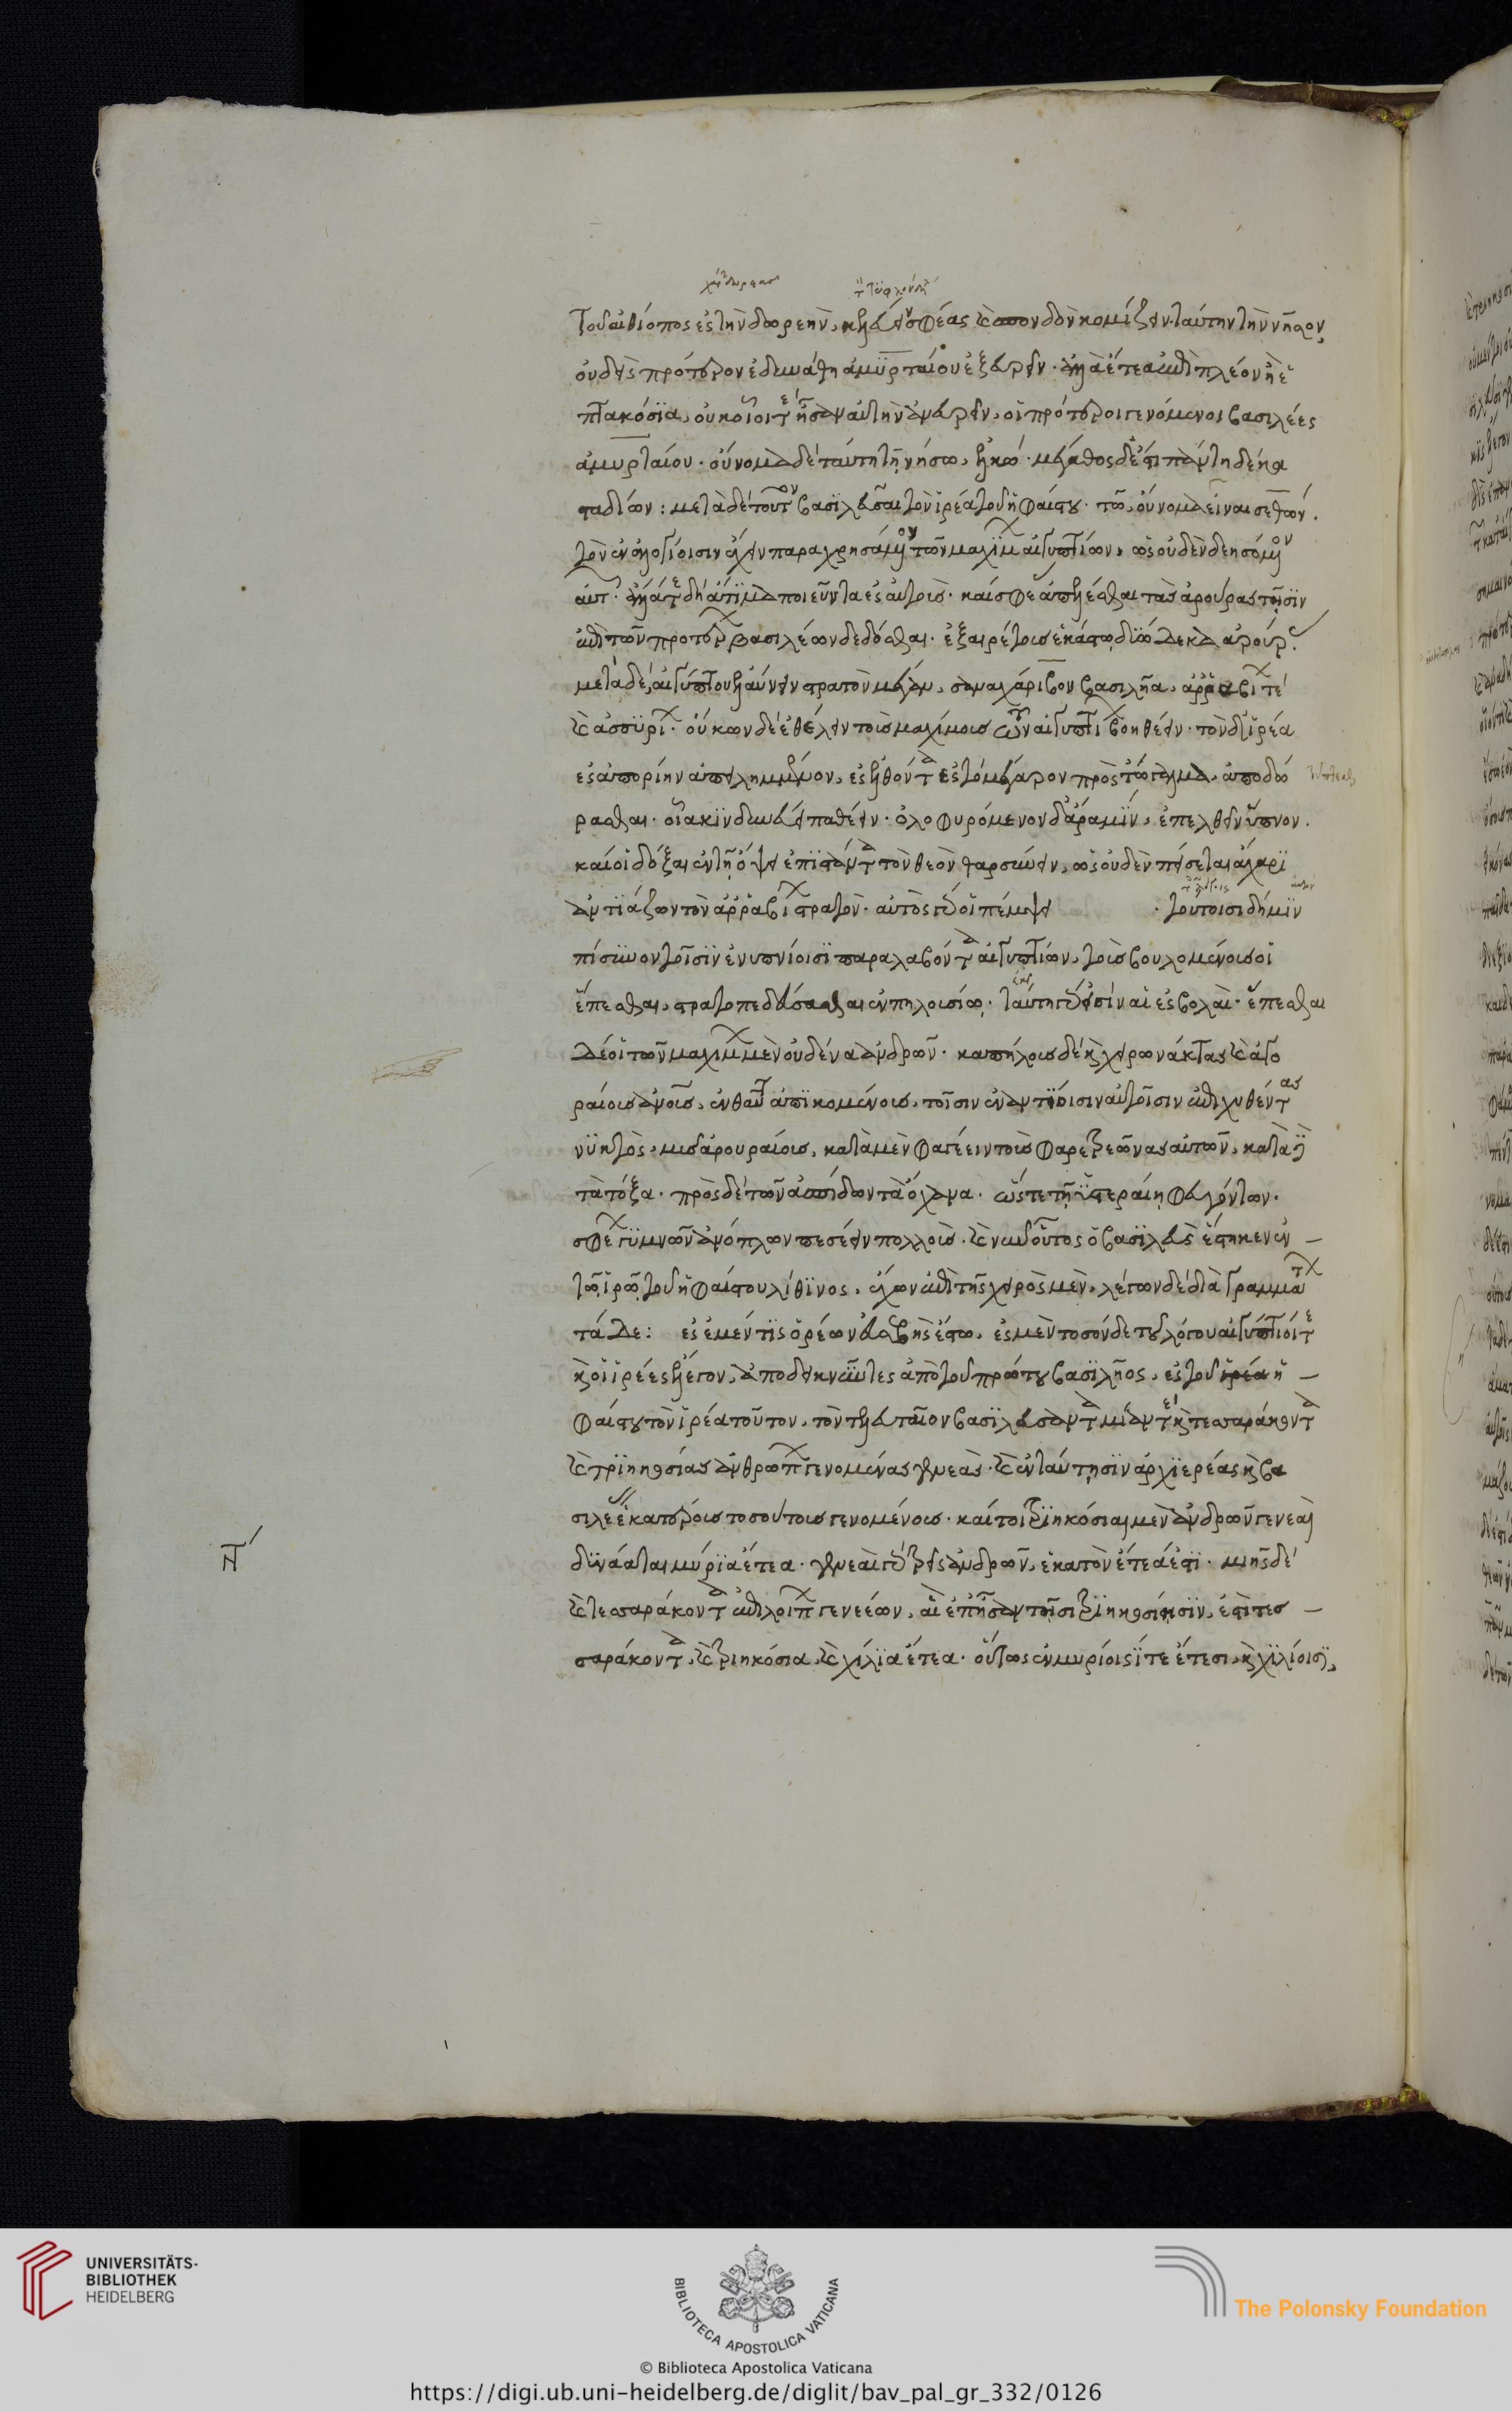 τοῦ αἰθίοπος ἐς τὴν δωρεὴν, κελεύειν σφέας καὶ σποδὸν κομίζειν. ταύτην τὴν νῆσον
οὐδεὶς πρότερον ἐδυνάσθη ἀμϋρταίου ἐξευρεῖν. ἀλλὰ ἔτεα ἐπὶ πλέον ἢ ἑ
πτακόσϊα, οὐκ οἷοί τε ἦσαν αὐτὴν ἀνευρεῖν, οἱ πρότεροι γενόμενοι βασιλέες
ἀμυρταίου. οὔνομα δὲ ταύτῃ τῇ νήσω, μέγαθος δ' ἐστὶ πάντῃ δέκα
σταδίων: μετὰ δὲ τοῦτον βασϊλεῦσαι τὸν ἱρέα τοῦ ἡφαίστου. τῶ, οὔνομα εἶναι σεθών.
τὸν ἐν ἀλογίοισιν ἔχειν παραχρησάμενον τῶν μαχΐμων αἰγυπτίων, ὡς οὐδὲν δεησόμενον
αὐτῶν. ἄλλά τε δὴ ἄτϊμα ποιεῦντα ἐς αὐτούς. καί σφε ἀπελέσθαι τὰς ἀρούρας τοῖσϊν
ἐπὶ τῶν προτέρων βασιλέων δεδόσθαι. ἐξαιρέτους ἑκάστω δϋώδεκα ἀρούρας.
μετὰ δὲ, αἰγύπτου ἐλαύνειν στρατὸν μέγαν, σαναχάριβον βασιλῆα, ἀρραβίων τέ
καὶ ἀσσϋρίων. οὔκων δὲ ἐθέλειν τοὺς μαχίμους τῶν αἰγυπτίων βοηθέειν. τὸν δ' ἱρέα
ἐς ἀπορίην ἀπειλημμένον, ἐσελθόντα ἐς τὸ μέγαρον πρὸς τὤγαλμα, ἀποδύ
ρασθαι. οἷα κϊνδυνεύει παθέειν. ὀλοφυρόμενον δ' ἄρα μϊν, ἐπελθεῖν ὕπνον.
καί οἱ δόξαι ἐν τῇ ὄψει ἐπϊστάντα τὸν θεὸν θαρσύνειν, ὡς οὐδὲν πείσεται ἄχαρϊ
ἀντϊάζων τὸν ἀρραβίων στρατόν. αὐτὸς γάρ οἱ πέμψει . τούτοισι δή μϊν
πίσϋνον τοῖσϊν ἐνυπνίοισϊ παραλαβόντα αἰγυπτίων, τοὺς βουλομένους οἱ
ἕπεσθαι, στρατοπεδεύσασθαι ἐν πηλουσίω. ταύτῃ γάρ εἰσὶν αἱ ἐσβολαὶ. ἕπεσθαι
δέ οἱ τῶν μαχίμων μὲν οὐδένα ἀνδρῶν. καπήλους δὲ καὶ χειρώνακτας καὶ ἀγο
ραίους ἀνθρώπους, ἐνθαῦτα ἀπϊκομένους, τοῖσιν ἐναντίοισιν αὐτοῖσιν ἐπιχυθέντας
νϋκτὸς, μῦς ἀρουραίους, κατὰ μὲν φαγέειν τοὺς φαρετρεῶνας αὐτῶν, κατὰ δὲ
τὰ τόξα. πρὸς δὲ τῶν ἀσπίδων τὰ ὄχανα. ὥστε τῇ ὑστεραίῃ φευγόντων.
σφέων γϋμνῶν ἀνόπλων πεσέειν πολλούς. καὶ νῦν οὗτος ὁ βασϊλεὺς ἕστηκεν ἐν
τῶ ἱρῶ τοῦ ἡφαίστου λίθϊνος, ἔχων ἐπὶ τῆς χειρὸς μῦν, λέγων δὲ διὰ γραμμάτων
τάδε: ἐς ἐμέν τϊς ὁρέων εὐσεβὴς ἔστω. ἐς μὲν τοσόνδε τοῦ λόγου αἰγύπτιοί τε
καὶ οἱ ἱρέες ἔλεγον, ἀποδεικνύντες ἀπὸ τοῦ πρώτου βασϊλῆος, ἐς τοῦ ἱρέα ἡ
φαίστου τὸν ἱρέα τοῦτον, τὸν τελευταῖον βασϊλεύσαντα μίαν τε καὶ τεσσαράκοντα
καὶ τρϊηκοσίας ἀνθρώπων γενομένας γενεὰς. καὶ ἐν ταύτῃσϊν ἀρχϊερέας καὶ βα
σιλέας ἑκατέρους τοσούτους γενομένους. καίτοι τρϊηκόσιαι μὲν ἀνδρῶν γενεαὶ
δϋνάαται μύρϊα ἔτεα. γενεαὶ γὰρ τρεῖς ἀνδρῶν, ἑκατὸν ἔτεά ἐστϊ. μιῆς δὲ
καὶ τεσσαράκοντα ἐπιλοίπων γενεέων, αἳ ἐπῆσαν τοῖσι τρϊηκοσίῃσϊν, ἐστὶ τεσ
σαράκοντα, καὶ τριηκόσια, καὶ χίλϊα ἔτεα. οὕτως ἐν μυρίοισΐ τε ἔτεσι, καὶ χϊλίοισϊ,
UNIVERSITÄTS-
BIBLIOTHEK
HEIDELBERG
BIBLIOTECA APOSTOLICA VATICANA
The Polonsky Foundation
© Biblioteca Apostolica Vaticana
https://digi.ub.uni-heidelberg.de/diglit/bav_pal_gr_332/0126